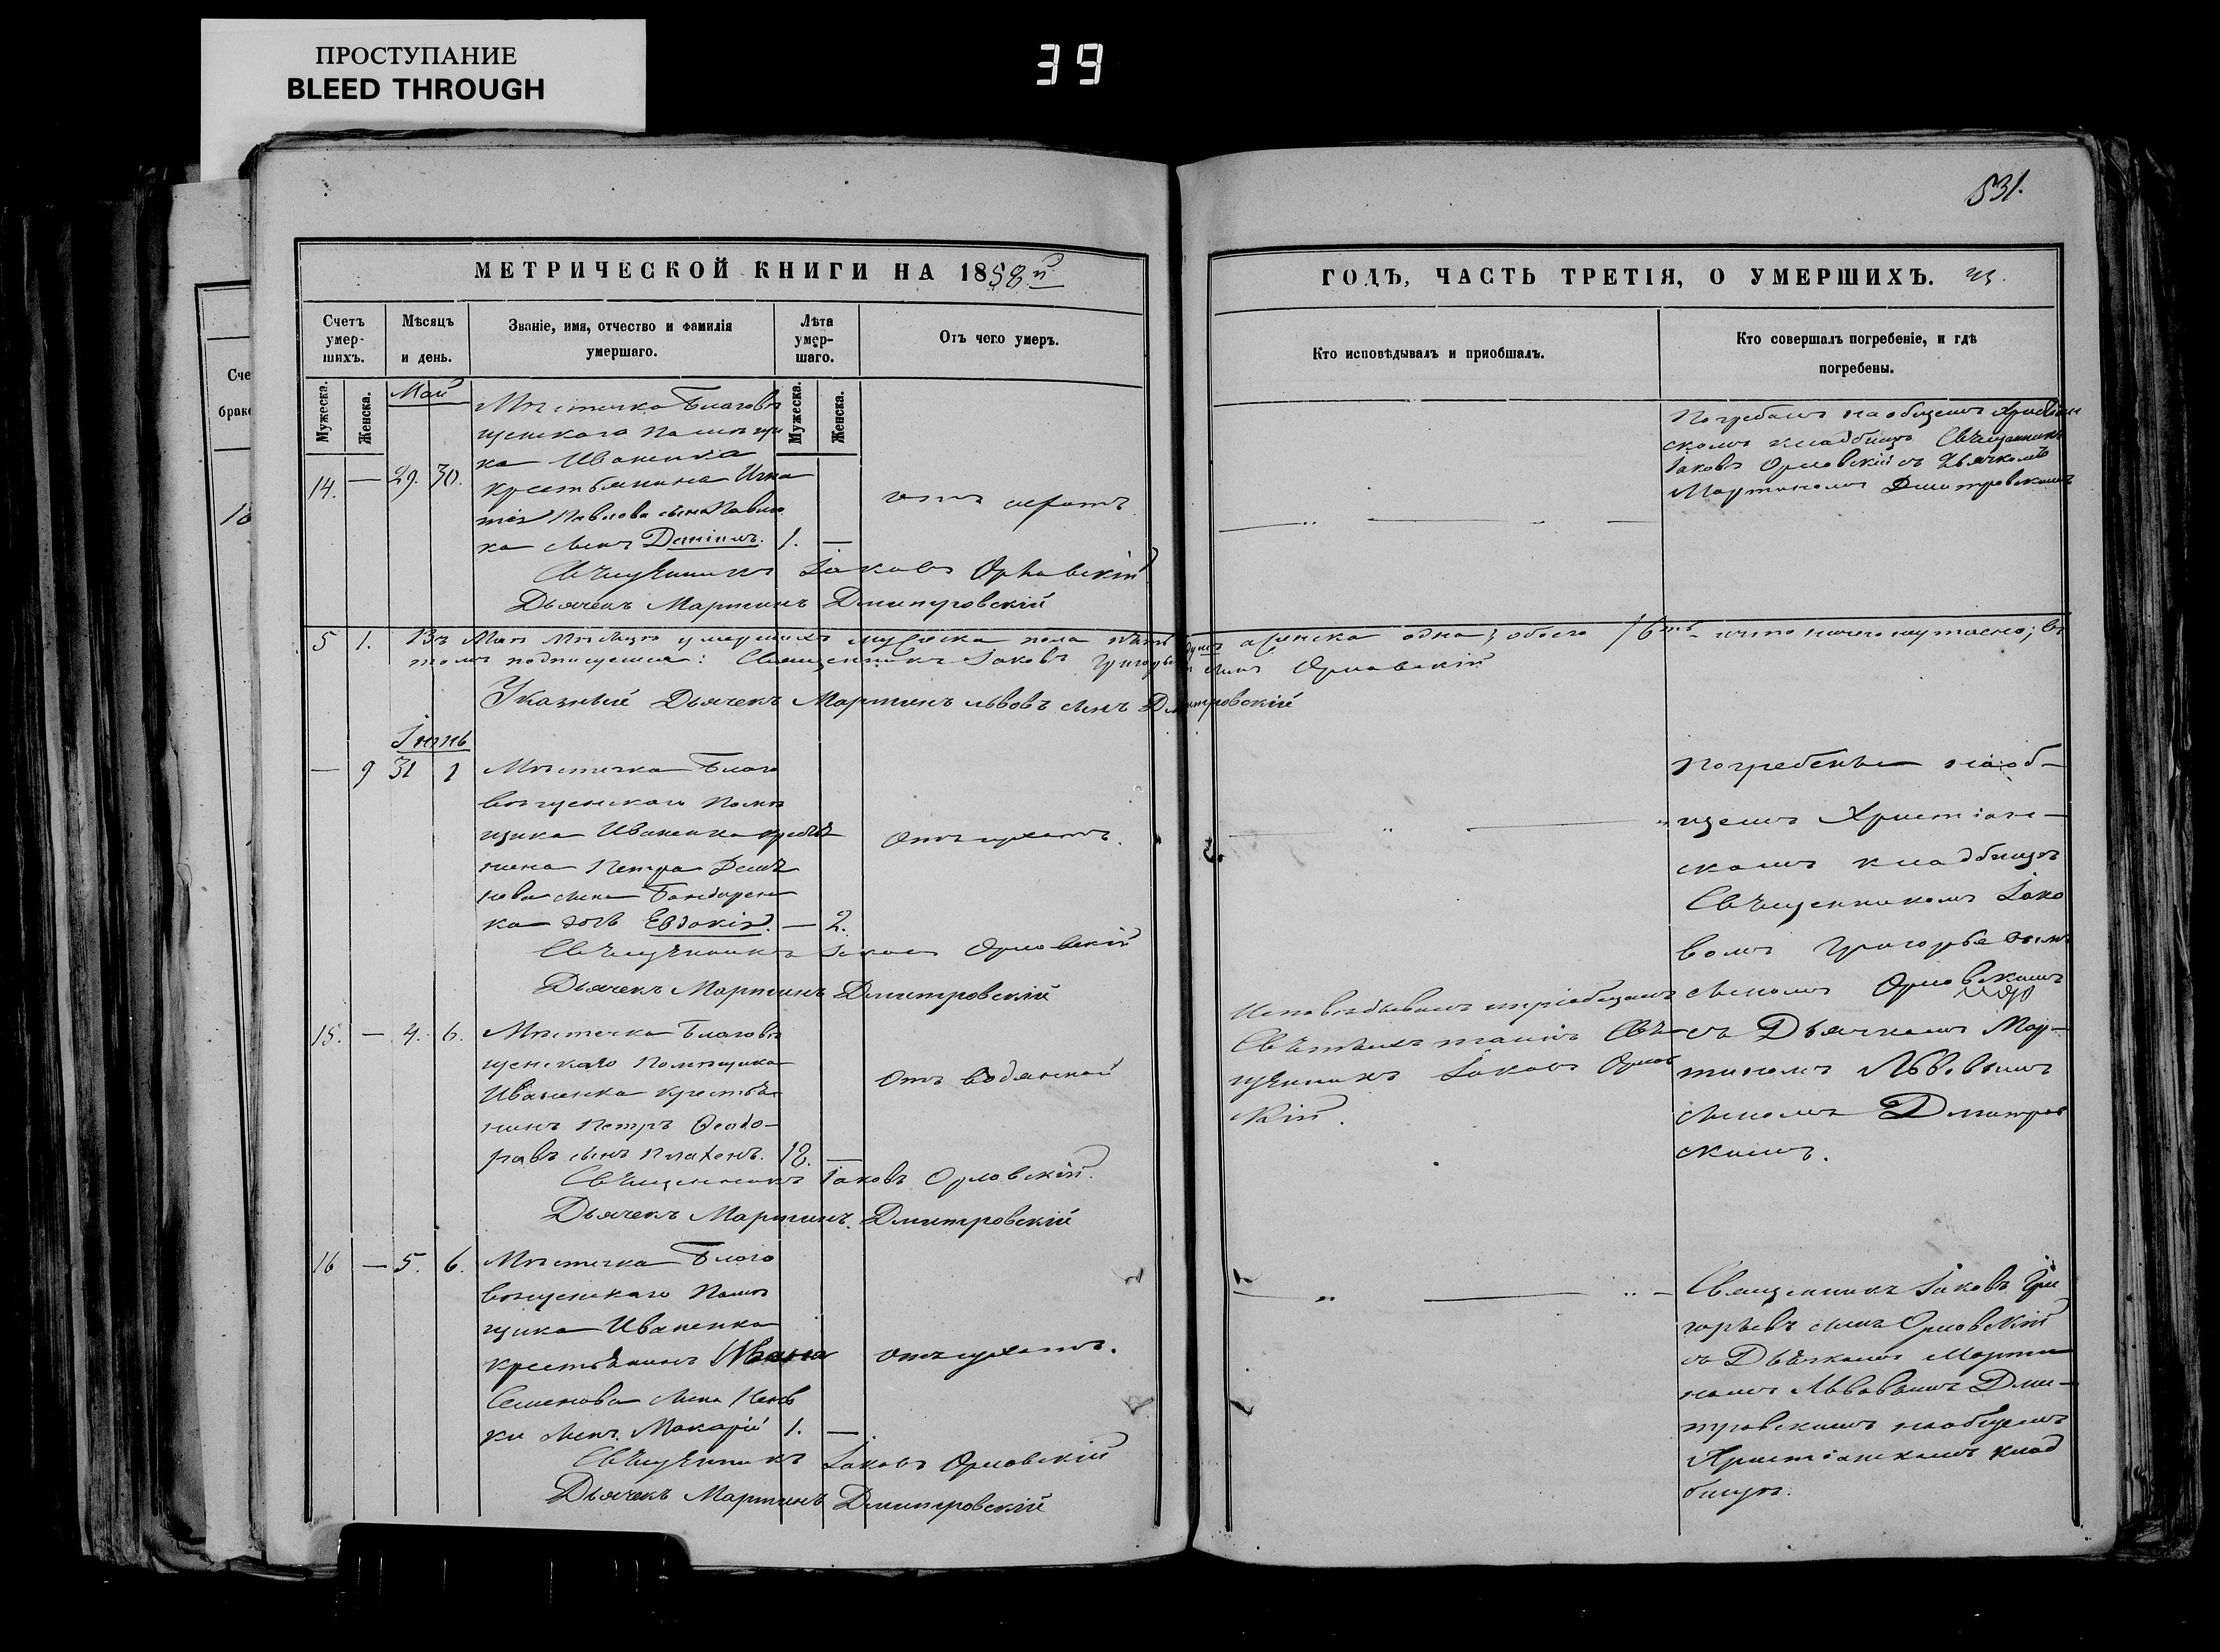 ПРОСТУПАНИЕ
BLEED THROUGH
39
531.
МЕТРИЧЕСКОЙ КНИГИ НА 1858й
ГОДЪ, ЧАСТЬ ТРЕТІЯ, О УМЕРШИХЪ.
Счетъ умер-шихъ.
Мѣсяцъ и день.
Званіе, имя, отчество и фамилія умершаго.
Лѣта умер-шаго.
Отъ чего умеръ.
Кто исповѣдывалъ и пріобщалъ.
Кто совершалъ погребеніе, и гдѣ погребены.
Мужеска.
Женска.
Мужеска.
Женска.
Сче
брако
Май
14. — 29. 30.
Мѣстечка Благовѣ
щенскаго Помѣщи
ка Иваненка
крестьянина Игна
тія Павлова сына Павлен
ка сынъ 1. —
Священникъ Іаковъ Орловскій
Дьячекъ Мартинъ Дмитровскій
Погребалъ на общемъ Христіан
скомъ кладбищѣ Священникъ
Іаковъ Орловскій съ Дьячкомъ
Мартиномъ Дмитровскимъ
5 1. Въ Маѣ Мѣсяцѣ умершихъ мужеска пола пять женска одна; обоего 6ть
томъ подписуемся: Священникъ Іаковъ Григорьевъ сынъ Орловскій
Указный Дьячекъ Мартинъ Львовъ сынъ Дмитровскій
Іюнь
— 9 31 1
Мѣстечка Благо
вѣщенскаго Помѣ
щика Иваненка крестья
нина Петра
сына Бондарен
ка дочь Евдокія. — 2.
Священникъ Іаковъ Орловскій
Дьячекъ Мартинъ Дмитровскій
Погребены на об-
щемъ Христіан-
скомъ кладбищѣ
Священникомъ Іако
вомъ Григорьевымъ
сыномъ Орловскимъ
съ Дьячкомъ Мар-
тиномъ Львовымъ
сыномъ Дмитров
скимъ.
15. — 4. 6.
Мѣстечка Благовѣ
щенскаго Помѣщика
Иваненка крестья
нинъ Петръ Феодо-
ровъ сынъ 12. —
Отъ водянной
Священникъ Іаковъ Орловскій.
Дьячекъ Мартинъ Дмитровскій
Исповѣдывалъ и пріобщалъ
Святыхъ таинъ Свя-
щенникъ Іаковъ Орлов
скій.
16 — 5. 6.
Мѣстечка Благо
вѣщенскаго Помѣ
щика Иваненка
крестьянина Ивана
Семенова сына
ки сынъ Макарій 1. —
Священникъ Іаковъ Орловскій
Дьячекъ Мартинъ Дмитровскій
Священникъ Іаковъ Гри
горьевъ сынъ Орловскій
съ Дьячкомъ Марти
номъ Львовымъ Дми-
тровскимъ на общемъ
Христіанскомъ клад
бищѣ.